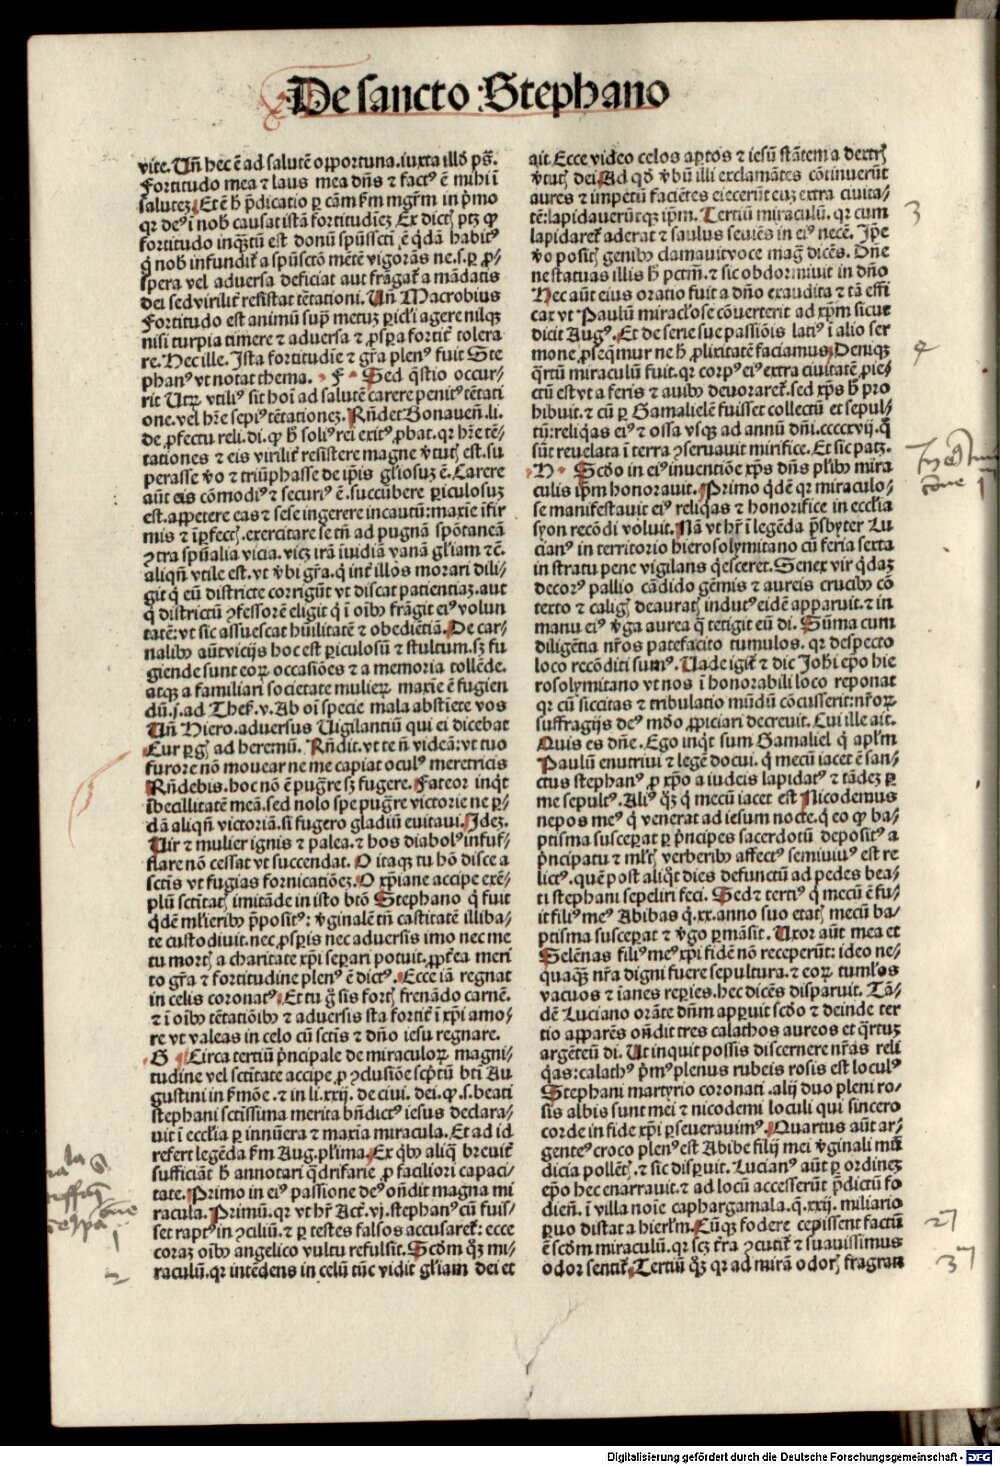 De sancto Stephano
vite. Uñ hec ē ad salutē opportuna. iuxta illd̓ pš.
Fortitudo mea ⁊ laus mea dñs ⁊ factꝰ ē mihi ī
salutez. Et ē h̓ p̄dicatio ꝑ cām s̄m mgr̄m in p̄mo
qꝛ deꝰ ī nob̓ causat istā fortitudiēz Ex dictꝭ ptꝫ ꝙ
fortitudo inqꝫtū est donū spūssctī ē q̄dā habitꝰ
q̄ nob̓ infundit̄ a spūsctō mētē vigorās ne .s. ꝑ ꝓ/
spera vel aduersa deficiat aut frāgat̄ a mādatis
dei sed virilit̄ resistat tētationi. Uñ Macrobius
Fortitudo est animū sup̄ metuꝫ ꝑicl̓i agere nilqꝫ
nisi turpia timere ⁊ aduersa ⁊ ꝓspa fortit̄ tolera
re. Hec ille. Ista fortitudīe ⁊ gr̄a plenꝰ fuit Ste
phanꝰ vt notat thema. F Sed q̄stio occur/
rit Utꝝ vtiliꝰ sit hoī ad salutē carere penitꝰ tētati
one. vel hr̄e sepiꝰ tētationez. Rñdet Bonaueñ. li.
de. ꝓfectu reli. di. ꝙ h̓ soliꝰ rei exitꝰ ꝓbat. qꝛ hr̄e tē/
tationes ⁊ eis virilit̄ resistere magne v̓tutꝭ est. su
perasse v̓o ⁊ triūphasse de ip̄is gl̓iosuꝫ ē. Carere
aūt eis cōmodiꝰ ⁊ securiꝰ ē. succūbere ꝑiculosuꝫ
est. appetere eas ⁊ sese ingerere incautū: maxīe īfir
mis ⁊ īꝑfectꝭ. exercitare se tñ ad pugnā spōtaneā
ꝯtra spūalia vicia. vicꝫ irā īuidiā vanā gl̓iam ⁊ c̄.
aliqñ vtile est. vt v̓bi gr̄a. q̓ int̄ illos morari dili/
git q̓ eū districte corrigūt vt discat patientiaꝫ. aut
q̓ districtū ꝯfessorē eligit q̓ ī oībꝫ frāgit eiꝰ volun
tatē: vt sic assuescat hūilitatē ⁊ obediētiā. De car/
nalibꝫ aūt vicijs hoc est ꝑiculosū ⁊ stultum. sꝫ fu
giende sunt eoꝝ occasiōes ⁊ a memoria tollēde.
atqꝫ a familiari societate mulieꝝ maxīe ē fugien
dū. j. ad Thes̄. v. Ab oī specie mala abstiete vos
Uñ Hiero. aduersus Uigilantiū qui ei dicebat
Cur ꝑgꝭ ad heremū. Rñdit. vt te ñ videā: vt tuo
furore nō mouear ne me capiat oculꝰ meretricis
Rñdebis. hoc nō ē pug̓re sꝫ fugere. Fateor inq̓t
ībecillitatē meā. sed nolo spe pug̓re victorie ne ꝑ/
dā aliqñ victoriā. si fugero gladiū euitaui. Idez.
Uir ⁊ mulier ignis ⁊ palea. ⁊ hos diabolꝰ insuf/
flare nō cessat vt succendat. O itaqꝫ tu hō disce a
sctīs vt fugias fornicatiōeꝫ. O xp̄iane accipe exē/
plū sctītatꝭ imitāde in isto bt̄o Stephano q̓ fuit
q̓dē ml̓ieribꝫ p̄positꝰ: v̓ginalē tñ castitatē illiba/
te custodiuit. nec ꝓspis nec aduersis imo nec me
tu mortꝭ a charitate xp̄i seꝑari potuit. ꝓpt̄ea meri
to gr̄a ⁊ fortitudine plenꝰ ē dictꝰ. Ecce iā regnat
in celis coronatꝰ. Et tu q̓ sis fortꝭ frenādo carnē.
⁊ ī oībꝫ tētatiōibꝫ ⁊ aduersis sta fortit̄ ī xp̄i amo/
re vt valeas in celo cū sctīs ⁊ dño iesu regnare.
G Circa tertiū p̄ncipale de miraculoꝝ magni/
tudine vel sctītate accipe ꝓ ꝯclusiōe scp̄tū bt̄i Au
gustini in s̄mōe. ⁊ in li. xxij. de ciui. dei. ꝙ .s. beati
stephani sctīssima merita bñdictꝰ iesus declara/
uit ī eccl̓ia ꝑ innūera ⁊ maxīa miracula. Et ad id
refert legēda s̄m Aug. pl̓ima. Ex qbꝫ aliq̓ breuit̄
sufficiāt h̓ annotari q̓drifarie ꝓ faciliori capaci/
tate. Primo in eiꝰ passione deꝰ oñdit magna mi
racula. Primū. qꝛ vt hr̄ Act̄. vj. stephanꝰ cū fuis/
set raptꝰ in ꝯciliū. ⁊ ꝑ testes falsos accusaret̄: ecce
coraꝫ oībꝫ angelico vultu refulsit. Scd̓m q̓ꝫ mi/
raculū. qꝛ intēdens in celū tūc vidit gl̓iam dei et
ait. Ecce video celos aꝑtos ⁊ iesū stātem a dextrꝭ
v̓tutꝭ dei. Ad qd̓ v̓bū illi exclamātes cōtinuerūt
aures ⁊ impetū faciētes eiecerūt euꝫ extra ciuita/
tē: lapidauerūtqꝫ ip̄m. Tertiū miraculū. qꝛ cum
lapidaret̄ aderat ⁊ saulus seuiēs in eiꝰ necē. Ip̄e
v̓o positꝭ genibꝫ clamauit voce mag̓ dicēs. Dñe
ne statuas illis h̓ pctm̄. ⁊ sic obdormiuit in dño
Hec aūt eius oratio fuit a dño exaudita ⁊ tā effi
cax vt Paulū miracl̓ose cōuerterit ad xp̄m sicut
dicit Augꝰ. Et de serie sue passiōis latiꝰ ī alio ser
mone ꝓseq̄mur ne h̓ ꝓlixitatē faciamus. Deniqꝫ
q̓rtū miraculū fuit. qꝛ corpꝰ eiꝰ extra ciuitatē ꝓie/
ctū est vt a feris ⁊ auibꝫ deuoraret̄. sed xp̄s h̓ pro
hibuit. ⁊ cū ꝑ Gamalielē fuisset collectū et sepul/
tū: reliq̓as eiꝰ ⁊ ossa vsqꝫ ad annū dñi. ccccxvij. q̄
sūt reuelata ī terra ꝯseruauit mirifice. Et sic patꝫ.
H Scd̓o in eiꝰ inuentiōe xp̄s dñs pl̓ibꝫ mira
culis ip̄m honorauit. Primo q̓dē qꝛ miraculo/
se manifestauit eiꝰ reliq̓as ⁊ honorifice in eccl̓ia
syon recōdi voluit. Nā vt hr̄ ī legēda p̄sbyter Lu
cianꝰ in territorio hierosolymitano cū feria sexta
in stratu pene vigilans q̓esceret. Senex vir q̓daꝫ
decorꝰ pallio cādido gēmis ⁊ aureis crucibꝫ cō
texto ⁊ caligꝭ deauratꝭ indutꝰ eidē apparuit. ⁊ in
manu eiꝰ v̓ga aurea q̄ tetigit eū di. Sūma cum
diligētia nr̄os patefacito tumulos. qꝛ despecto
loco recōditi sumꝰ. Uade igit̄ ⁊ dic Joh̓i ep̄o hie
rosolymitano vt nos ī honorabili loco reponat
qꝛ cū siccitas ⁊ tribulatio mūdū cōcusserit: nr̄oꝝ
suffragijs deꝰ mūdo ꝓpiciari decreuit. Cui ille ait.
Quis es dñe. Ego inq̓t sum Gamaliel q̓ apl̓m
Paulū enutriui ⁊ legē docui. q̓ mecū iacet ē san/
ctus stephanꝰ ꝓ xp̄o a iudeis lapidatꝰ ⁊ tādeꝫ ꝑ
me sepultꝰ. Aliꝰ q̓ꝫ q̓ mecū iacet est Nicodemus
nepos meꝰ q̓ venerat ad iesum nocte. q̓ eo ꝙ ba/
ptisma susceꝑat ꝑ p̄ncipes sacerdotū depositꝰ a
p̄ncipatu ⁊ ml̓tꝭ verberibꝫ affectꝰ semiuiuꝰ est re
lictꝰ. quē post aliq̓t dies defunctū ad pedes bea/
ti stephani sepeliri feci. Sed ⁊ tertiꝰ q̓ mecū ē fu/
it filiꝰ meꝰ Abibas q̓. xx. anno suo etatꝭ mecū ba/
ptisma susceꝑat ⁊ v̓go ꝑmāsit. Uxor aūt mea et
Selēnas filiꝰ meꝰ xp̄i fidē nō receperūt: ideo ne/
quaq̄ꝫ nr̄a digni fuere sepultura. ⁊ eoꝝ tuml̓os
vacuos ⁊ īanes reꝑies. hec dicēs disparuit. Tā/
dē Luciano orāte dñm apꝑuit scd̓o ⁊ deinde ter
tio apparēs oñdit tres calathos aureos et q̓rtuꝫ
argēteū di. Ut inquit possis discernere nr̄as reli
q̓as: calathꝰ p̄mꝰ plenus rubeis rosis est loculꝰ
Stephani martyrio coronati. alij duo pleni ro/
sis albis sunt mei ⁊ nicodemi loculi qui sincero
corde in fide xp̄i ꝑseuerauimꝰ. Quartus aūt ar/
genteꝰ croco plenꝰ est Abibe filij mei v̓ginali mū
dicia pollētꝭ. ⁊ sic disꝑuit. Lucianꝰ aūt ꝑ ordineꝫ
ep̄o hec enarrauit. ⁊ ad locū accesserūt p̄dictū fo
dieñ. ī villa noīe caphargamala. q̄. xxij. miliario
ꝑuo distat a hierl̓m. Cūqꝫ fodere cepissent factū
ē scd̓m miraculū. qꝛ scꝫ tr̄a ꝯcutit̄ ⁊ suauissimus
odor sentit̄. Tertiū q̓ꝫ qꝛ ad mirā odorꝭ fragran
3
4
1
1
2
27
3
Digitalisierung gefördert durch die Deutsche Forschungsgemeinschaft - DFG